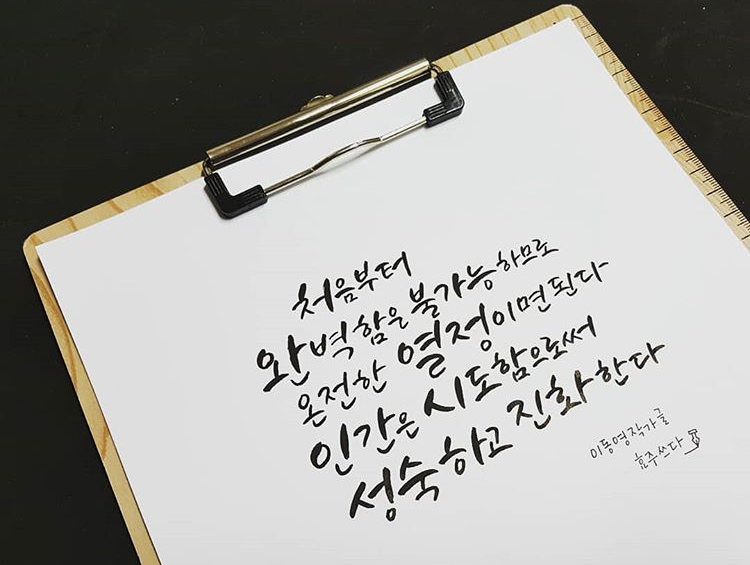 처음부터
완벽함은 불가능하므로
온전한 열정이면 된다
인간은 시도함으로써
성숙하고 진화한다
이동영 작가 글
효주 쓰다